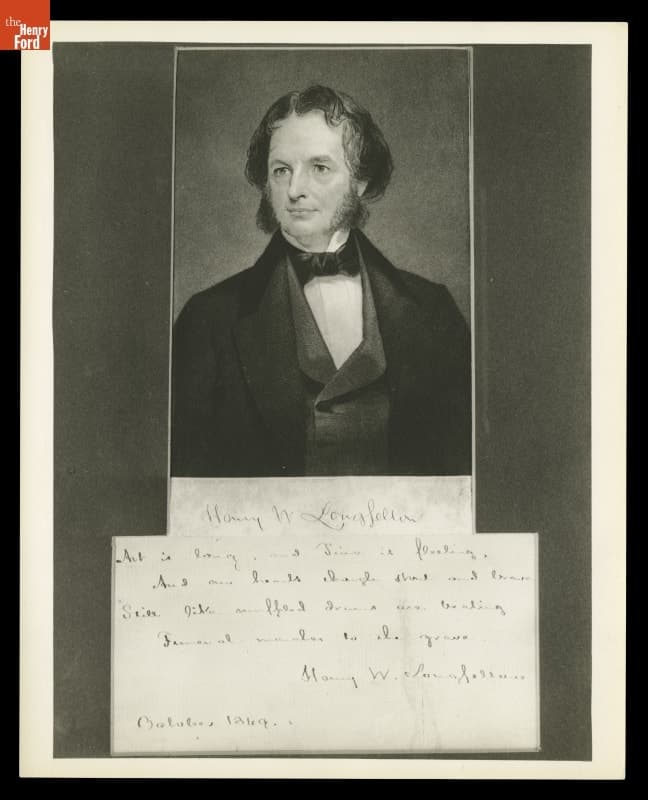 the
Henry
Ford
Henry W Longfellow
Art is long, and Time is fleeting,
And our hearts though stout and brave
Still like muffled drums are beating
Funeral marches to the grave
Henry W. Longfellow
October 1849.